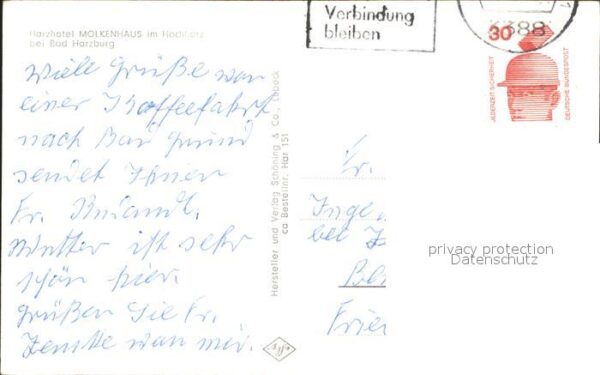 Harzhotel MOLKENHAUS im Hochharz
bei Bad Harzburg
Viele Grüße von
einer Kaffeefahrt
nach Bad
sendet Ihnen
Fr.
Wetter ist sehr
schön hier.
grüßen Sie Fr.
von mir.
Hersteller und Verlag Schöning & Co., Lübeck
ca Bestellnr. Har 151
Verbindung
bleiben
30
JEDERZEIT SICHERHEIT
DEUTSCHE BUNDESPOST
Fr.
Inge
bei
privacy protection
Datenschutz